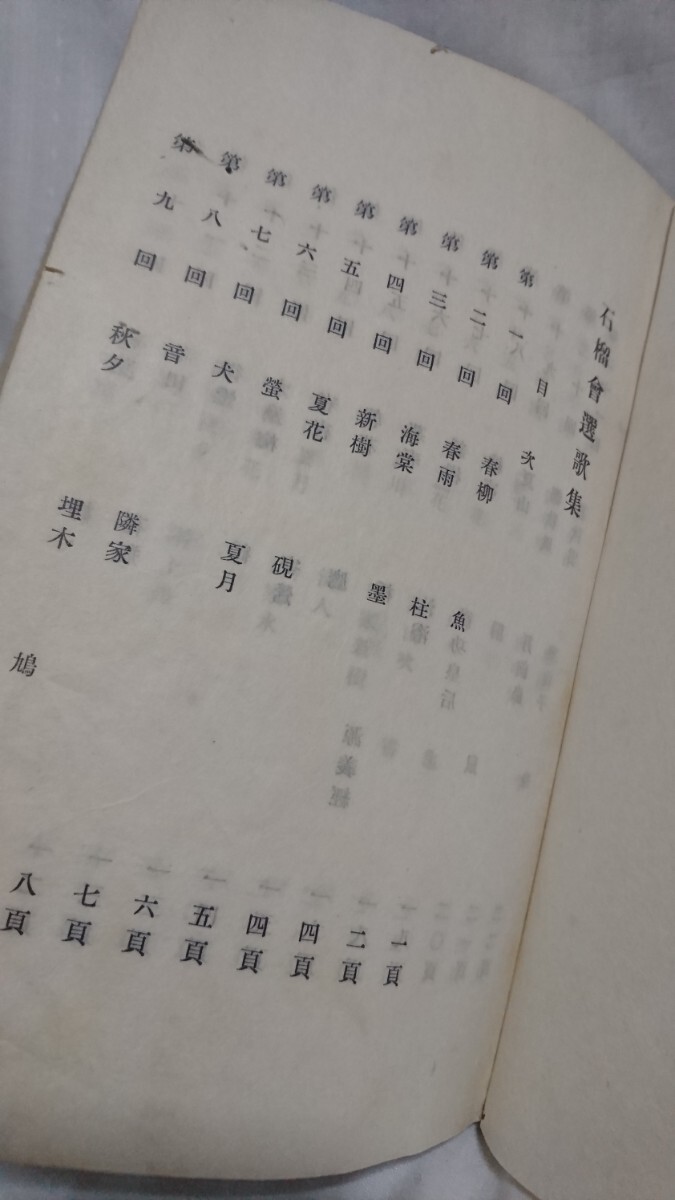 石榴會選歌集
目次
第一回 春柳 魚 一頁
第二回 春雨 柱 二頁
第三回 海棠 墨 四頁
第四回 新樹 四頁
第五回 夏花 硯 五頁
第六回 螢 夏月 六頁
第七回 犬 七頁
第八回 音 隣家 八頁
第九回 秋夕 埋木 鳩